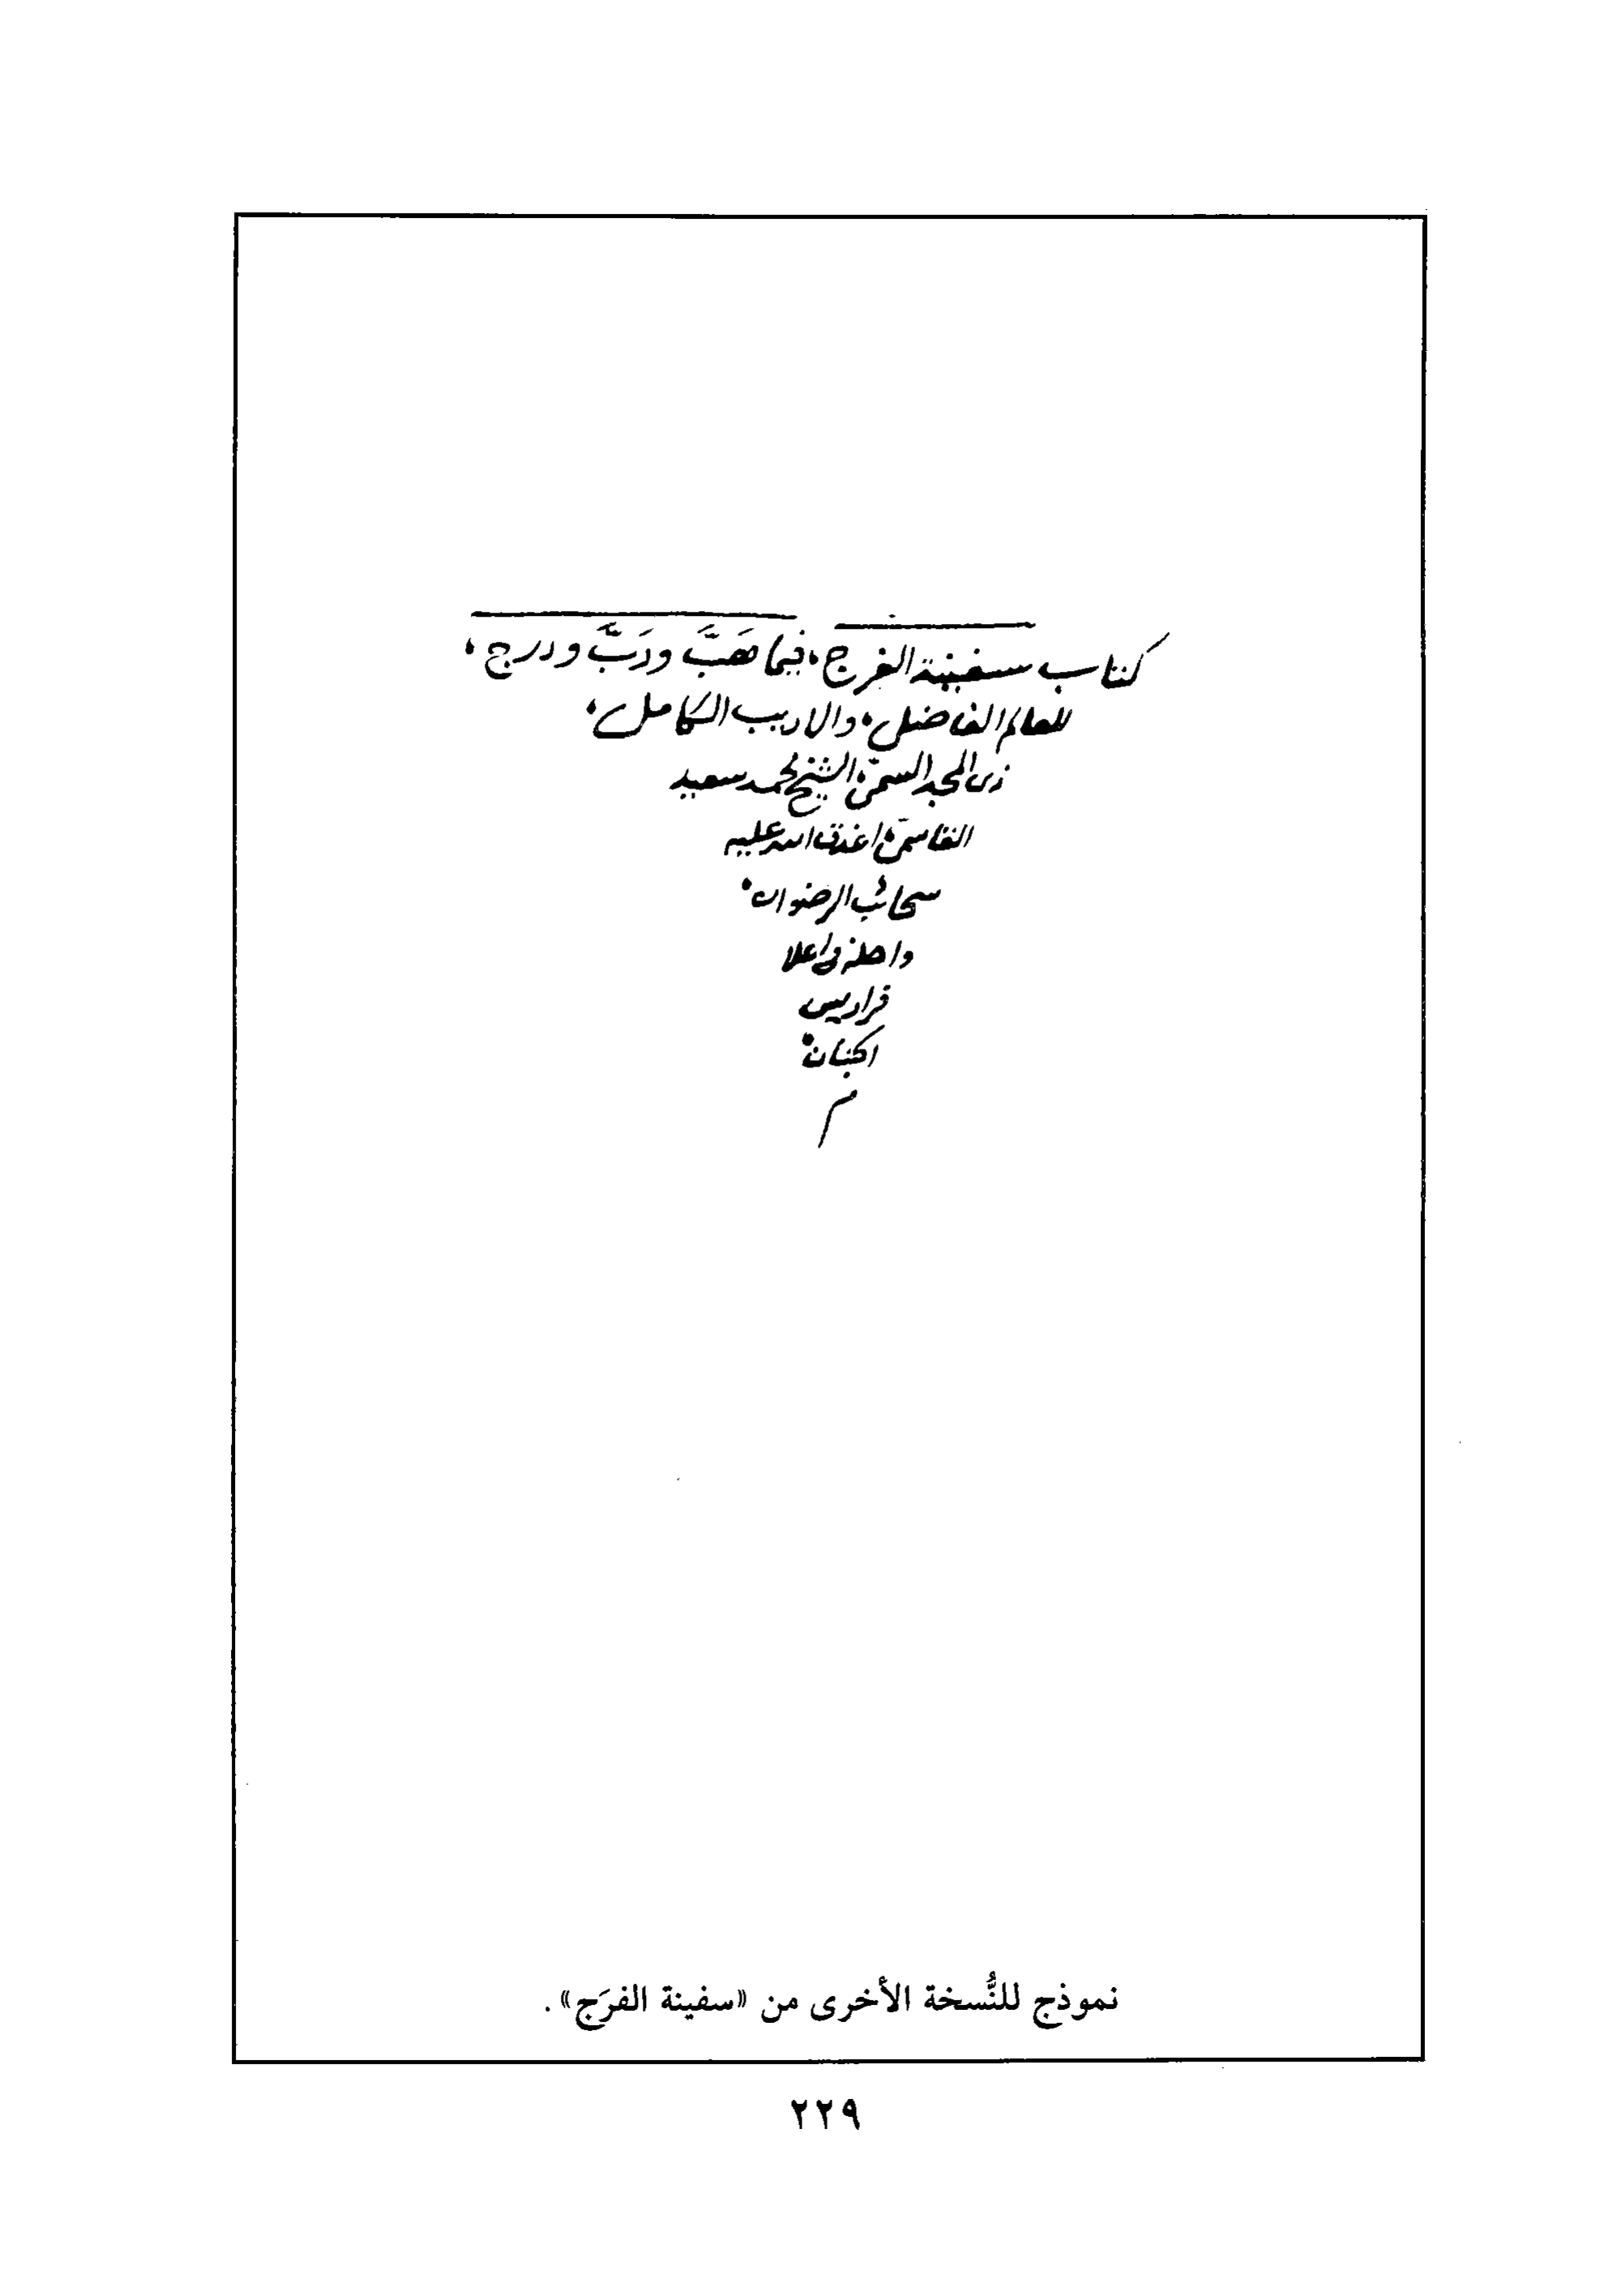 كتاب سفينة الفرج، فيما هَبَّ ودَبَّ ودرج،
للعالم الفاضل، والاديب الكامل،
ذى المجد السمىّ، الشيخ محمد سعيد
القاسمىّ، اغدق الله عليه
سحائب الرضوان،
واحله فى اعلا
فراديس
الجنان،
م
نموذج للنُّسخة الأخرى من «سفينة الفرَج».
٢٢٩